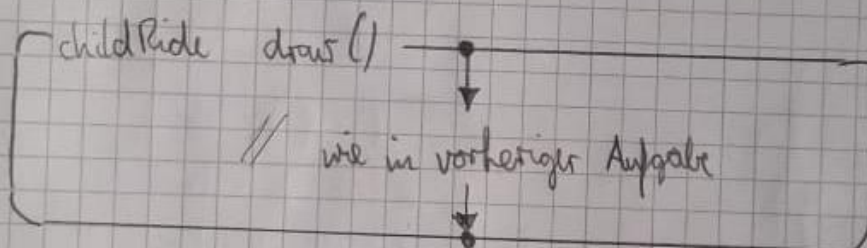 childRide draw()
// wie in vorheriger Aufgabe